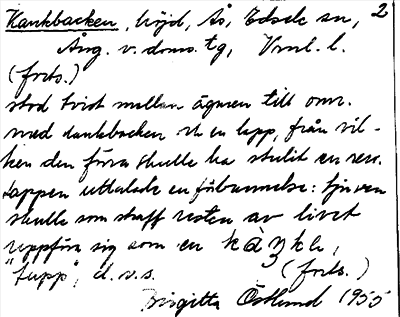 Kankbacken, höjd, Ås, Edsele sn, 2
Ång. v. doms. tg, Vnrl. l.
(forts.)
stod tvist mellan ägaren till omr.
med kankbacken och en lapp, från vil-
ken den förra skulle ha stulit en ren.
Lappen uttalade en förbannelse: tjuven
skulle som straff resten av livet
uppföra sig som en
"tupp", d.v.s. (forts.)
Birgitta Östlund 1955